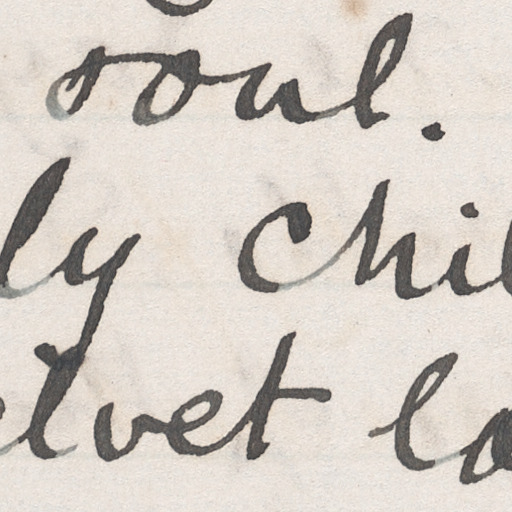 soul.
ly chil
elvet lo